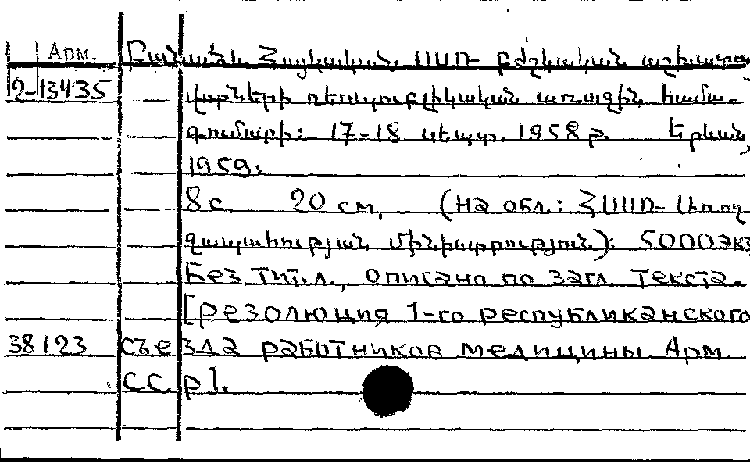 Арм. Բանաձև Հայկական ՍՍՌ բժշկական աշխատա
2-13435 վորների ռեսպուբլիկական առաջին համա-
գումարի: 17-18 սեպտ. 1958թ. Երևան,
1959.
8с. 20 см. (На обл.: ՀՍՍՌ- Առող
ջապահության մինիստրություն): 5000экз
Без тит.л., описано по загл. текста.
[резолюция 1-го республиканского
38123 съезда работников медицины Арм.
СС.р].